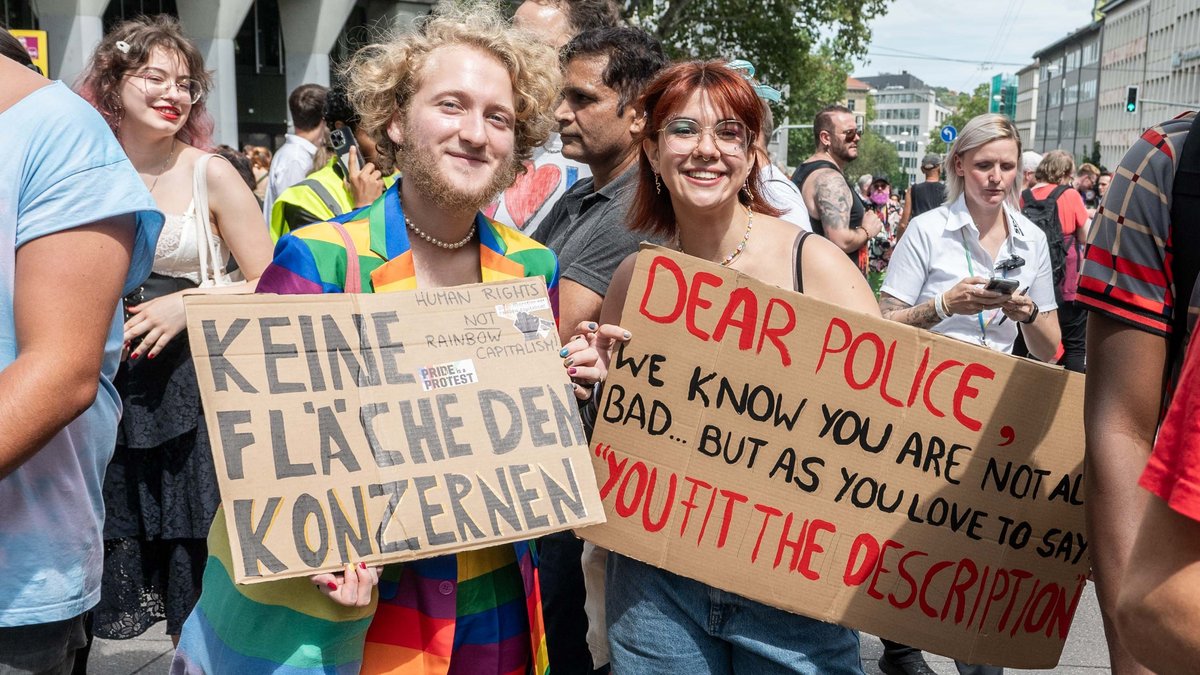 HUMAN RIGHTS
NOT
RAINBOW
CAPITALISM!
PRIDE is a
PROTEST
KEINE
FLÄCHE DEN
KONZERNEN
DEAR POLICE,
WE KNOW YOU ARE NOT AL
BAD... BUT AS YOU LOVE TO SAY
"YOU FIT THE DESCRIPTION"